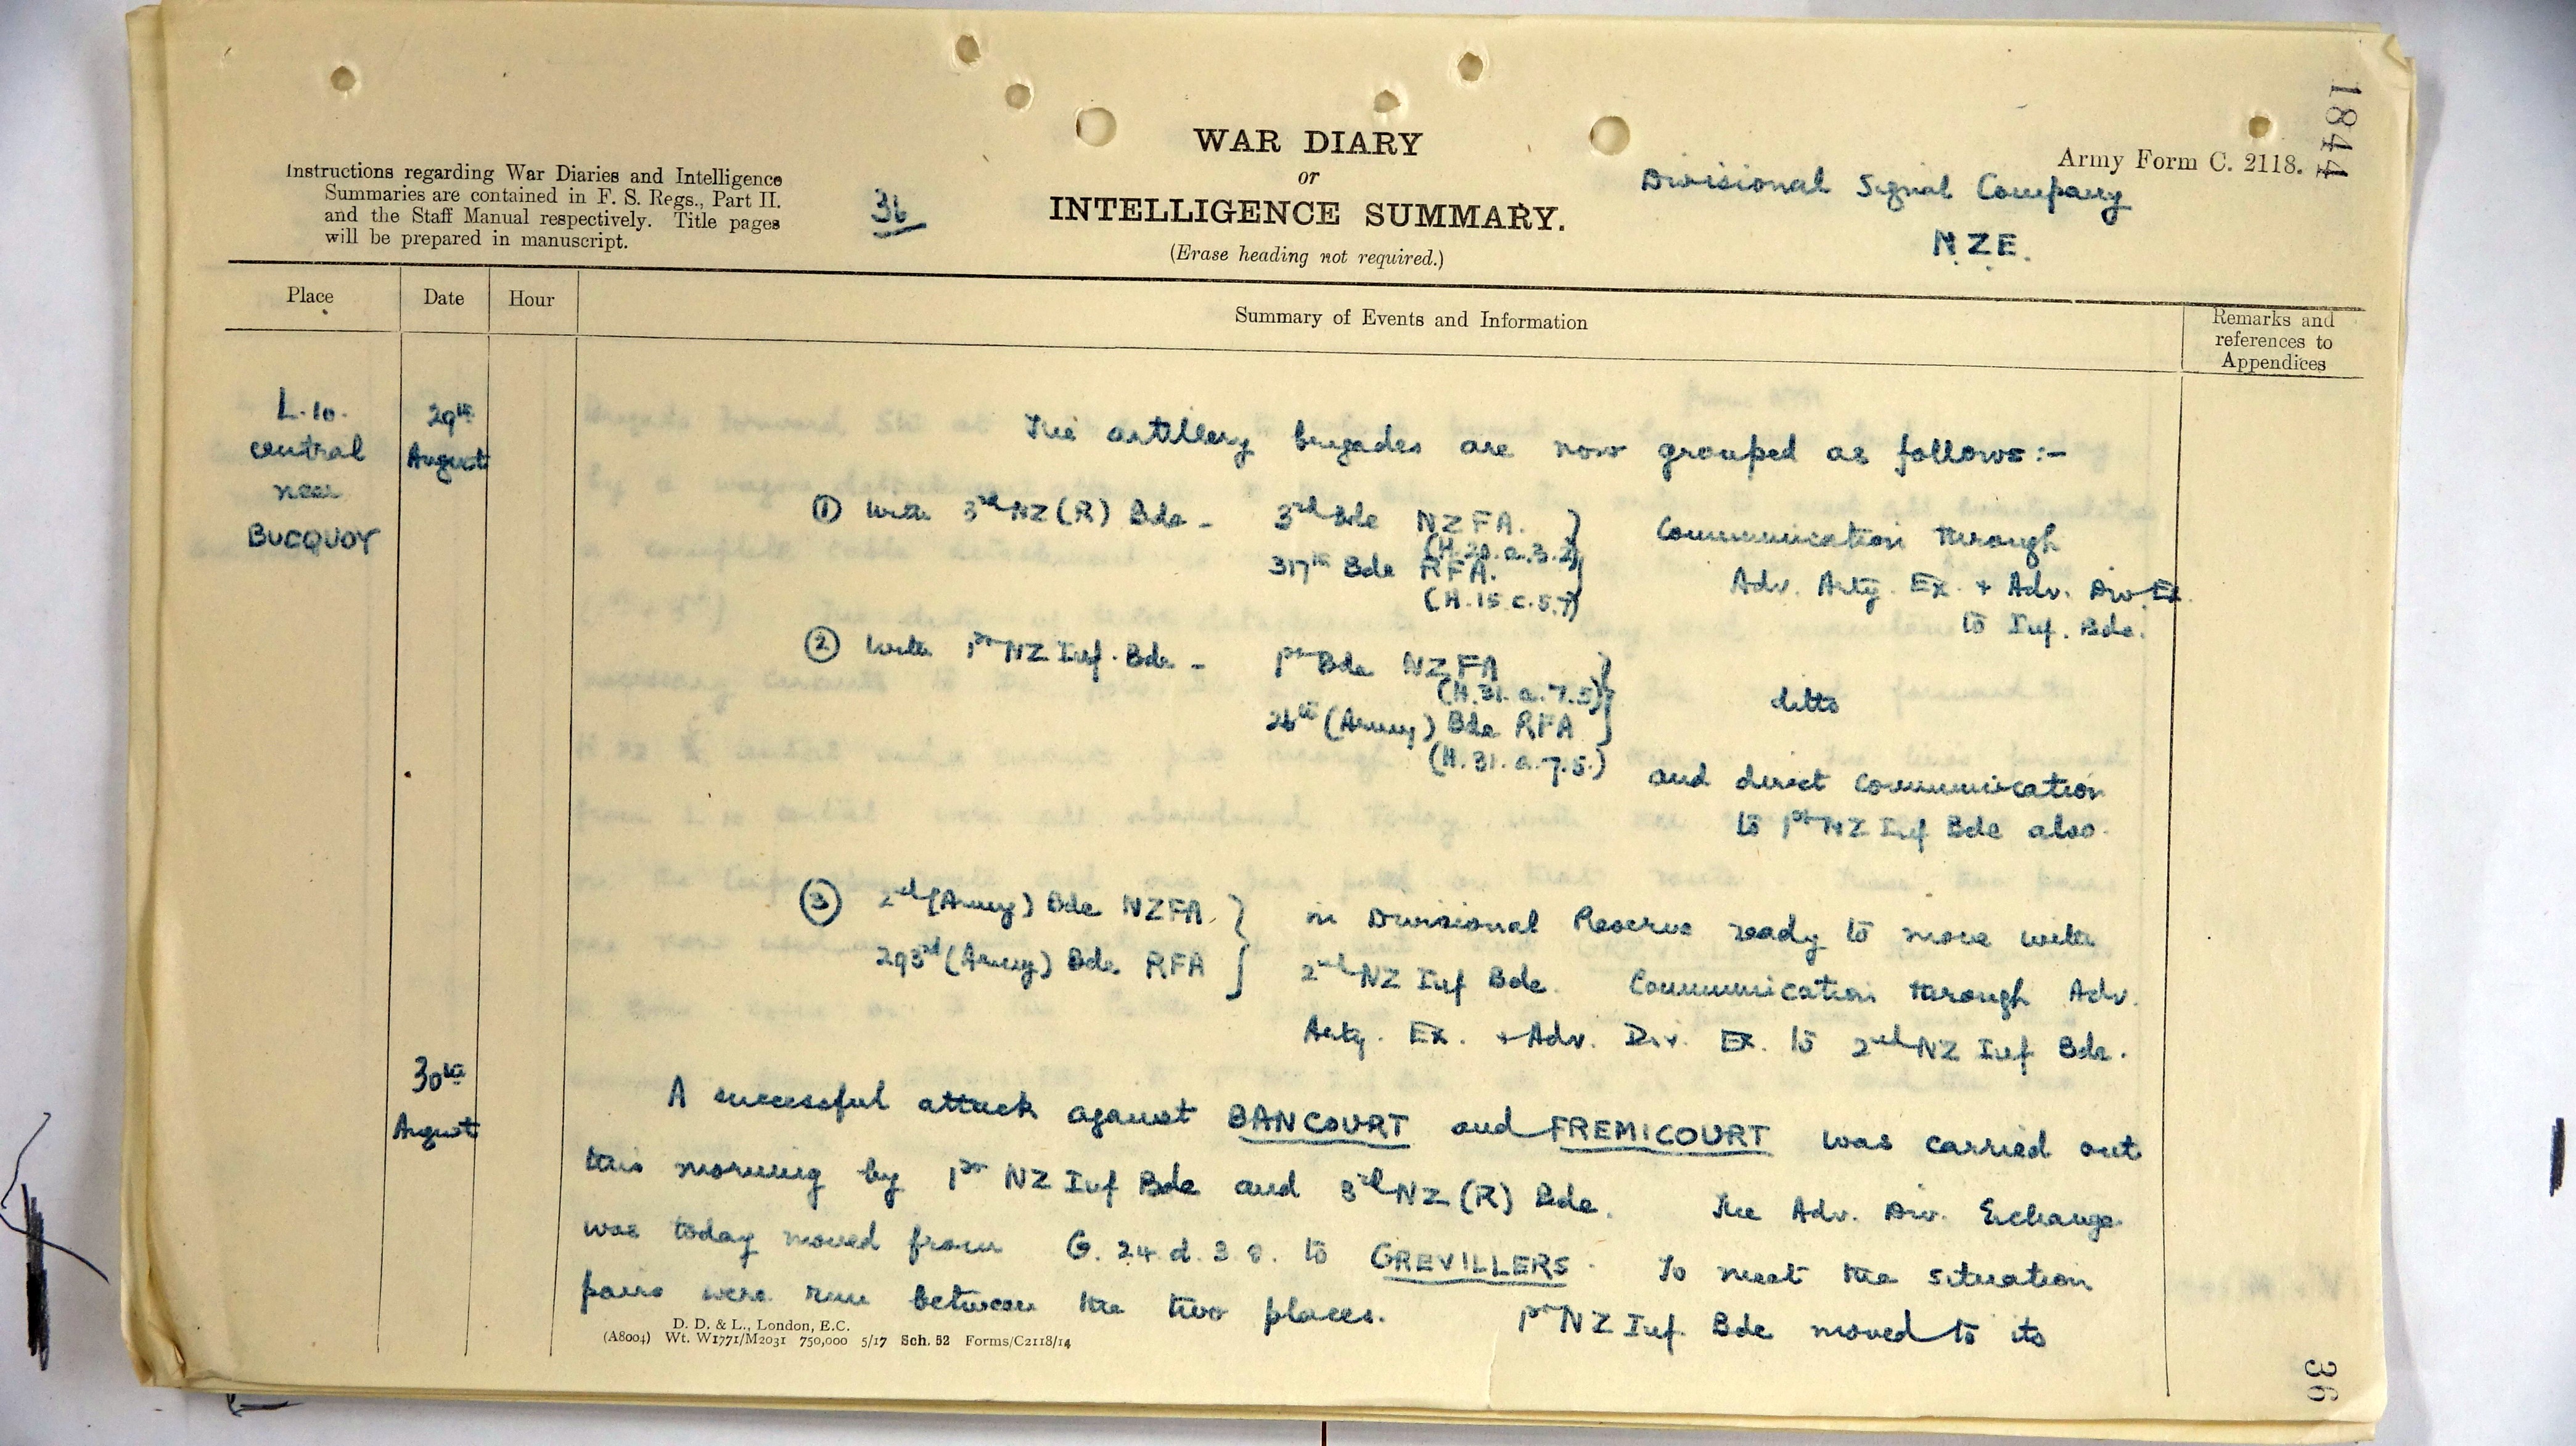 1844
Army Form C. 2118.
WAR DIARY
or
INTELLIGENCE SUMMARY.
(Erase heading not required.)
Instructions regarding War Diaries and Intelligence
Summaries are contained in F. S. Regs., Part II.
and the Staff Manual respectively. Title pages
will be prepared in manuscript.
36
Divisional Signal Company
N.Z.E.
Place Date Hour Summary of Events and Information Remarks and references to Appendices
L.10.
central
near
BUCQUOY
29th
August
The artillery brigades are now grouped as follows:-
① With 3rd NZ(R) Bde - 3rd Bde NZFA.
(H.20.a.3.2)
317th Bde RFA.
(H.15.c.5.7)
Communication through
Adv. Arty. Ex. + Adv. Div. Ex.
to Inf. Bde.
② With 1st NZ Inf. Bde - 1st Bde NZFA
(H.31.a.7.5)
26th (Army) Bde RFA
(H.31.a.7.5.)
ditto
and direct communication
to 1st NZ Inf Bde also.
③ 2nd (Army) Bde NZFA.
293rd (Army) Bde. RFA
in Divisional Reserve ready to move with
2nd NZ Inf Bde. Communication through Adv.
Arty. Ex. + Adv. Div. Ex. to 2nd NZ Inf Bde.
30th
August
A successful attack against BANCOURT and FREMICOURT was carried out
this morning by 1st NZ Inf Bde and 3rd NZ (R) Bde. The Adv. Div. Exchange
was today moved from G.24.d.3.8. to GREVILLERS. To meet the situation
pairs were run between the two places. 1st NZ Inf. Bde moved to its
D. D. & L., London, E.C.
(A8004) Wt. W1771/M2031 750,000 5/17 Sch. 52 Forms/C2118/14
36